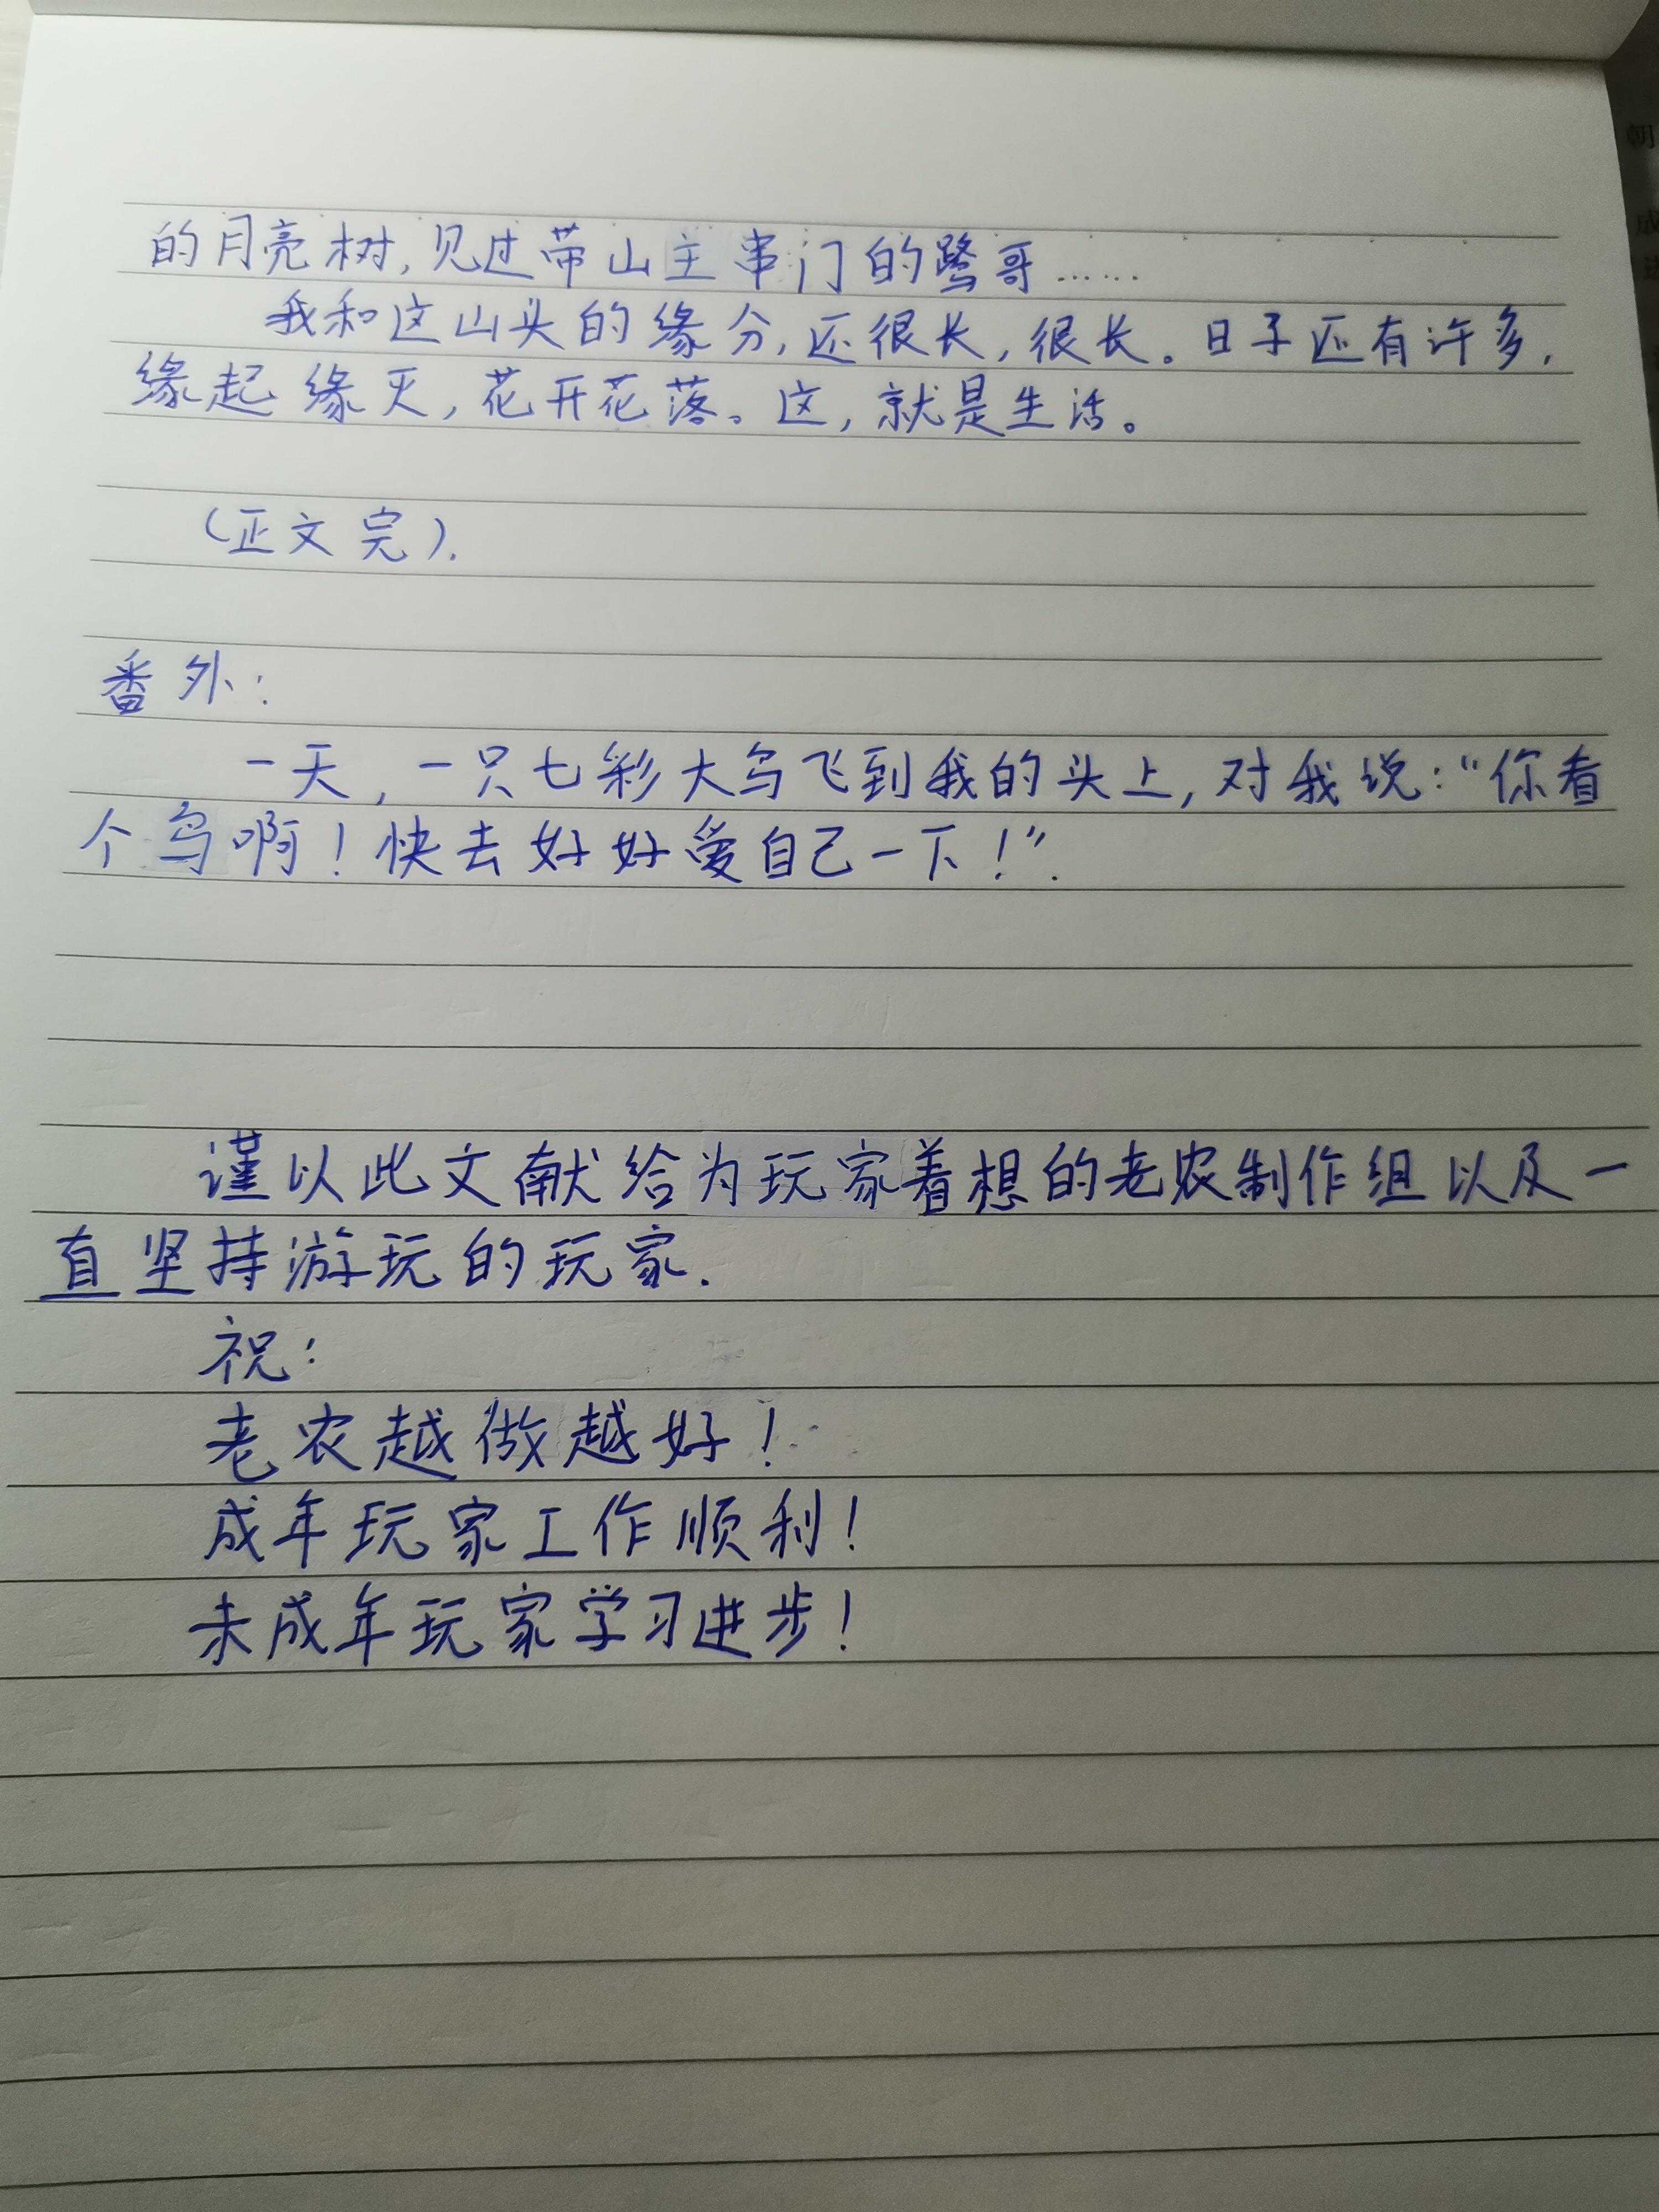 的月亮树,见过带山主串门的鹭哥……
我和这山头的缘分,还很长,很长。日子还有许多,
缘起缘灭,花开花落。这,就是生活。
(正文完).
番外:
一天,一只七彩大鸟飞到我的头上,对我说:“你看
个鸟啊!快去好好爱自己一下!”.
谨以此文献给为玩家着想的老农制作组以及一
直坚持游玩的玩家.
祝:
老农越做越好!
成年玩家工作顺利!
未成年玩家学习进步!